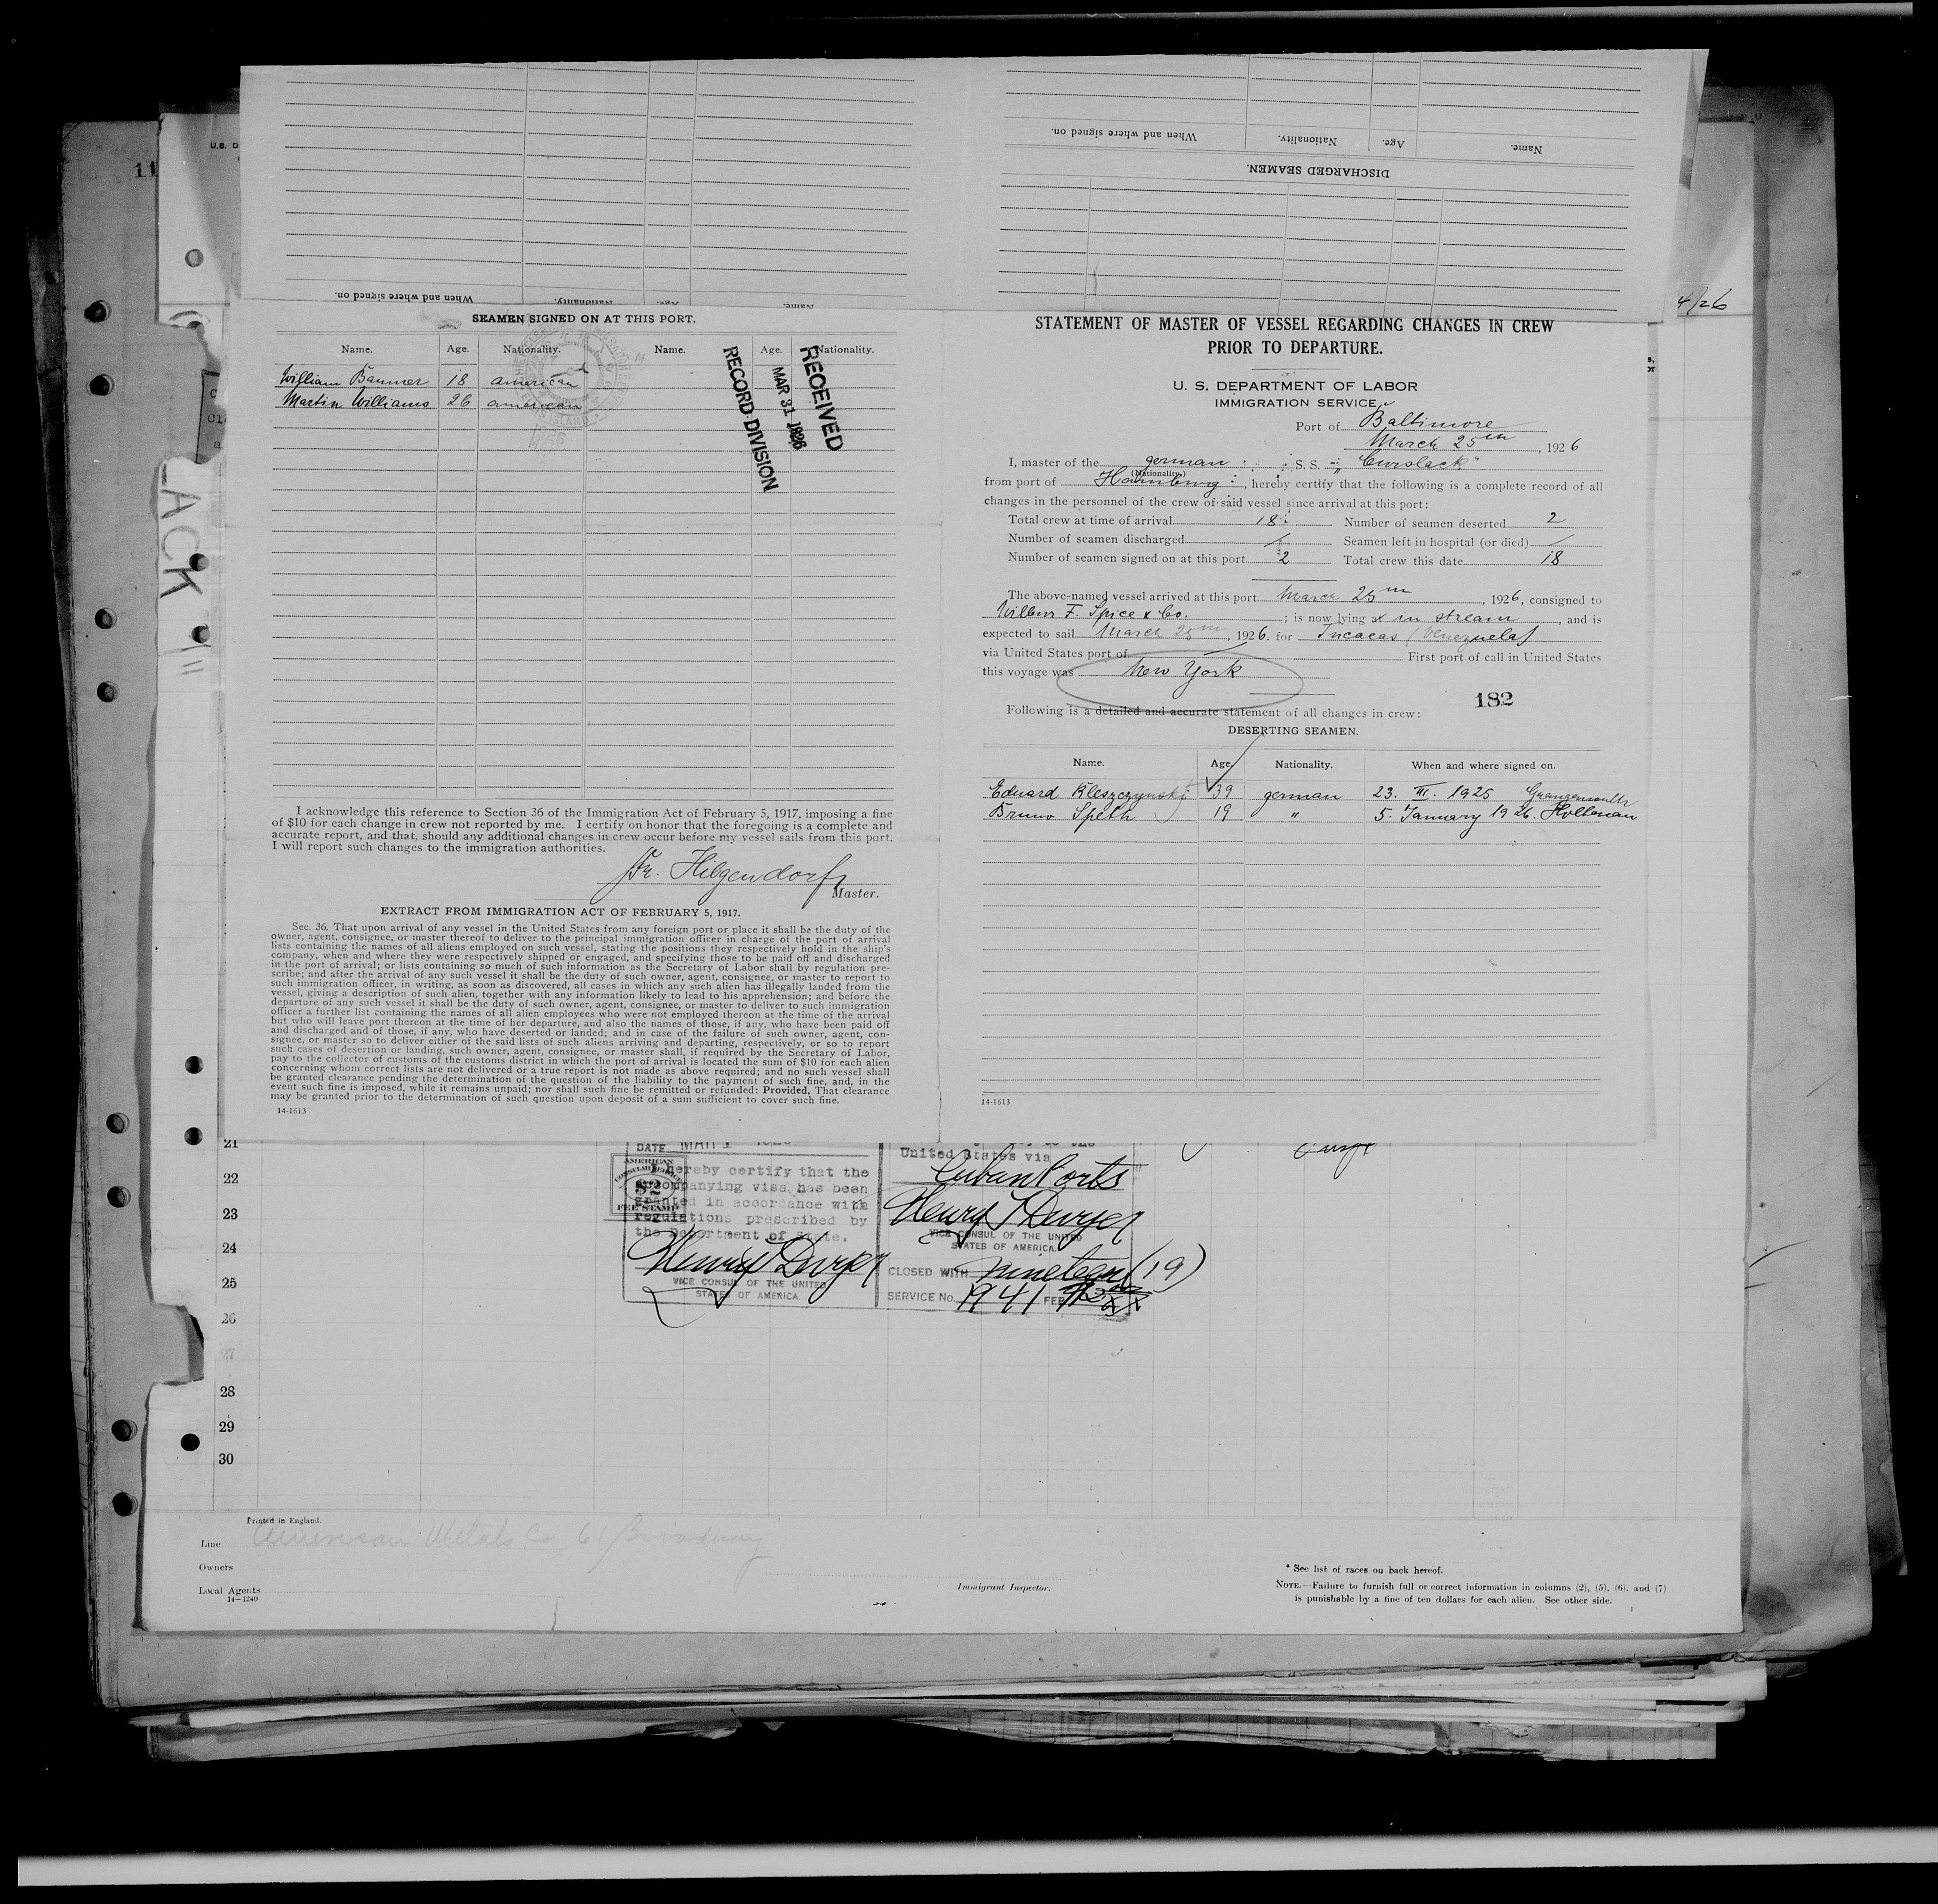 When and where signed on.
Nationality.
Age.
Name.
DISCHARGED SEAMEN.
When and where signed on.
Nationality.
Age.
Name.
U.S. D
11
4/26
LACK"
SEAMEN SIGNED ON AT THIS PORT.
Name. Age. Nationality. Name. Age. Nationality.
William Baumer 18 american
Martin Williams 26 american
RECEIVED
MAR 31 1926
RECORD DIVISION
I acknowledge this reference to Section 36 of the Immigration Act of February 5, 1917, imposing a fine
of $10 for each change in crew not reported by me. I certify on honor that the foregoing is a complete and
accurate report, and that, should any additional changes in crew occur before my vessel sails from this port,
I will report such changes to the immigration authorities.
Fr. Hilgendorf
Master.
EXTRACT FROM IMMIGRATION ACT OF FEBRUARY 5, 1917.
Sec. 36. That upon arrival of any vessel in the United States from any foreign port or place it shall be the duty of the
owner, agent, consignee, or master thereof to deliver to the principal immigration officer in charge of the port of arrival
lists containing the names of all aliens employed on such vessel, stating the positions they respectively hold in the ship's
company, when and where they were respectively shipped or engaged, and specifying those to be paid off and discharged
in the port of arrival; or lists containing so much of such information as the Secretary of Labor shall by regulation pre-
scribe; and after the arrival of any such vessel it shall be the duty of such owner, agent, consignee, or master to report to
such immigration officer, in writing, as soon as discovered, all cases in which any such alien has illegally landed from the
vessel, giving a description of such alien, together with any information likely to lead to his apprehension; and before the
departure of any such vessel it shall be the duty of such owner, agent, consignee, or master to deliver to such immigration
officer a further list containing the names of all alien employees who were not employed thereon at the time of the arrival
but who will leave port thereon at the time of her departure, and also the names of those, if any, who have been paid off
and discharged and of those, if any, who have deserted or landed; and in case of the failure of such owner, agent, con-
signee, or master so to deliver either of the said lists of such aliens arriving and departing, respectively, or so to report
such cases of desertion or landing, such owner, agent, consignee, or master shall, if required by the Secretary of Labor,
pay to the collector of customs of the customs district in which the port of arrival is located the sum of $10 for each alien
concerning whom correct lists are not delivered or a true report is not made as above required; and no such vessel shall
be granted clearance pending the determination of the question of the liability to the payment of such fine, and, in the
event such fine is imposed, while it remains unpaid; nor shall such fine be remitted or refunded: Provided, That clearance
may be granted prior to the determination of such question upon deposit of a sum sufficient to cover such fine.
14-1613
STATEMENT OF MASTER OF VESSEL REGARDING CHANGES IN CREW
PRIOR TO DEPARTURE.
U. S. DEPARTMENT OF LABOR
IMMIGRATION SERVICE
Port of Baltimore
March 25th, 1926
I, master of the german S. S. "Curslack"
(Nationality.)
from port of Hamburg, hereby certify that the following is a complete record of all
changes in the personnel of the crew of said vessel since arrival at this port:
Total crew at time of arrival 18 Number of seamen deserted 2
Number of seamen discharged / Seamen left in hospital (or died) /
Number of seamen signed on at this port 2 Total crew this date 18
The above-named vessel arrived at this port March 25th, 1926, consigned to
Wilbur F. Spice & Co.; is now lying x in stream, and is
expected to sail March 25th, 1926. for (Venezuela)
via United States port of First port of call in United States
this voyage was New York
182
Following is a detailed and accurate statement of all changes in crew:
DESERTING SEAMEN.
Name. Age. Nationality. When and where signed on.
Eduard Kleszczynski 39 german 23. III. 1925 Grangemouth
Bruno Speth 19 " 5. January 1926. Holtenau
14-1613
21
22
23
24
25
26
27
28
29
30
DATE MAR
I hereby certify that the
accompanying visa has been
granted in accordance with
regulations prescribed by
the Department of State.
AMERICAN
CONSULAR SERVICE
$2
FEE STAMP
Henry T Dwyer
VICE CONSUL OF THE UNITED
STATES OF AMERICA
United States via
Cuban Ports
Henry T Dwyer
VICE CONSUL OF THE UNITED
STATES OF AMERICA
CLOSED WITH nineteen (19)
SERVICE No. 1941 FEE
Printed in England.
American Metals Co 61 Broadway
Line
Owners
Local Agents
14-1240
Immigrant Inspector.
* See list of races on back hereof.
NOTE.—Failure to furnish full or correct information in columns (2), (5), (6), and (7)
is punishable by a fine of ten dollars for each alien. See other side.